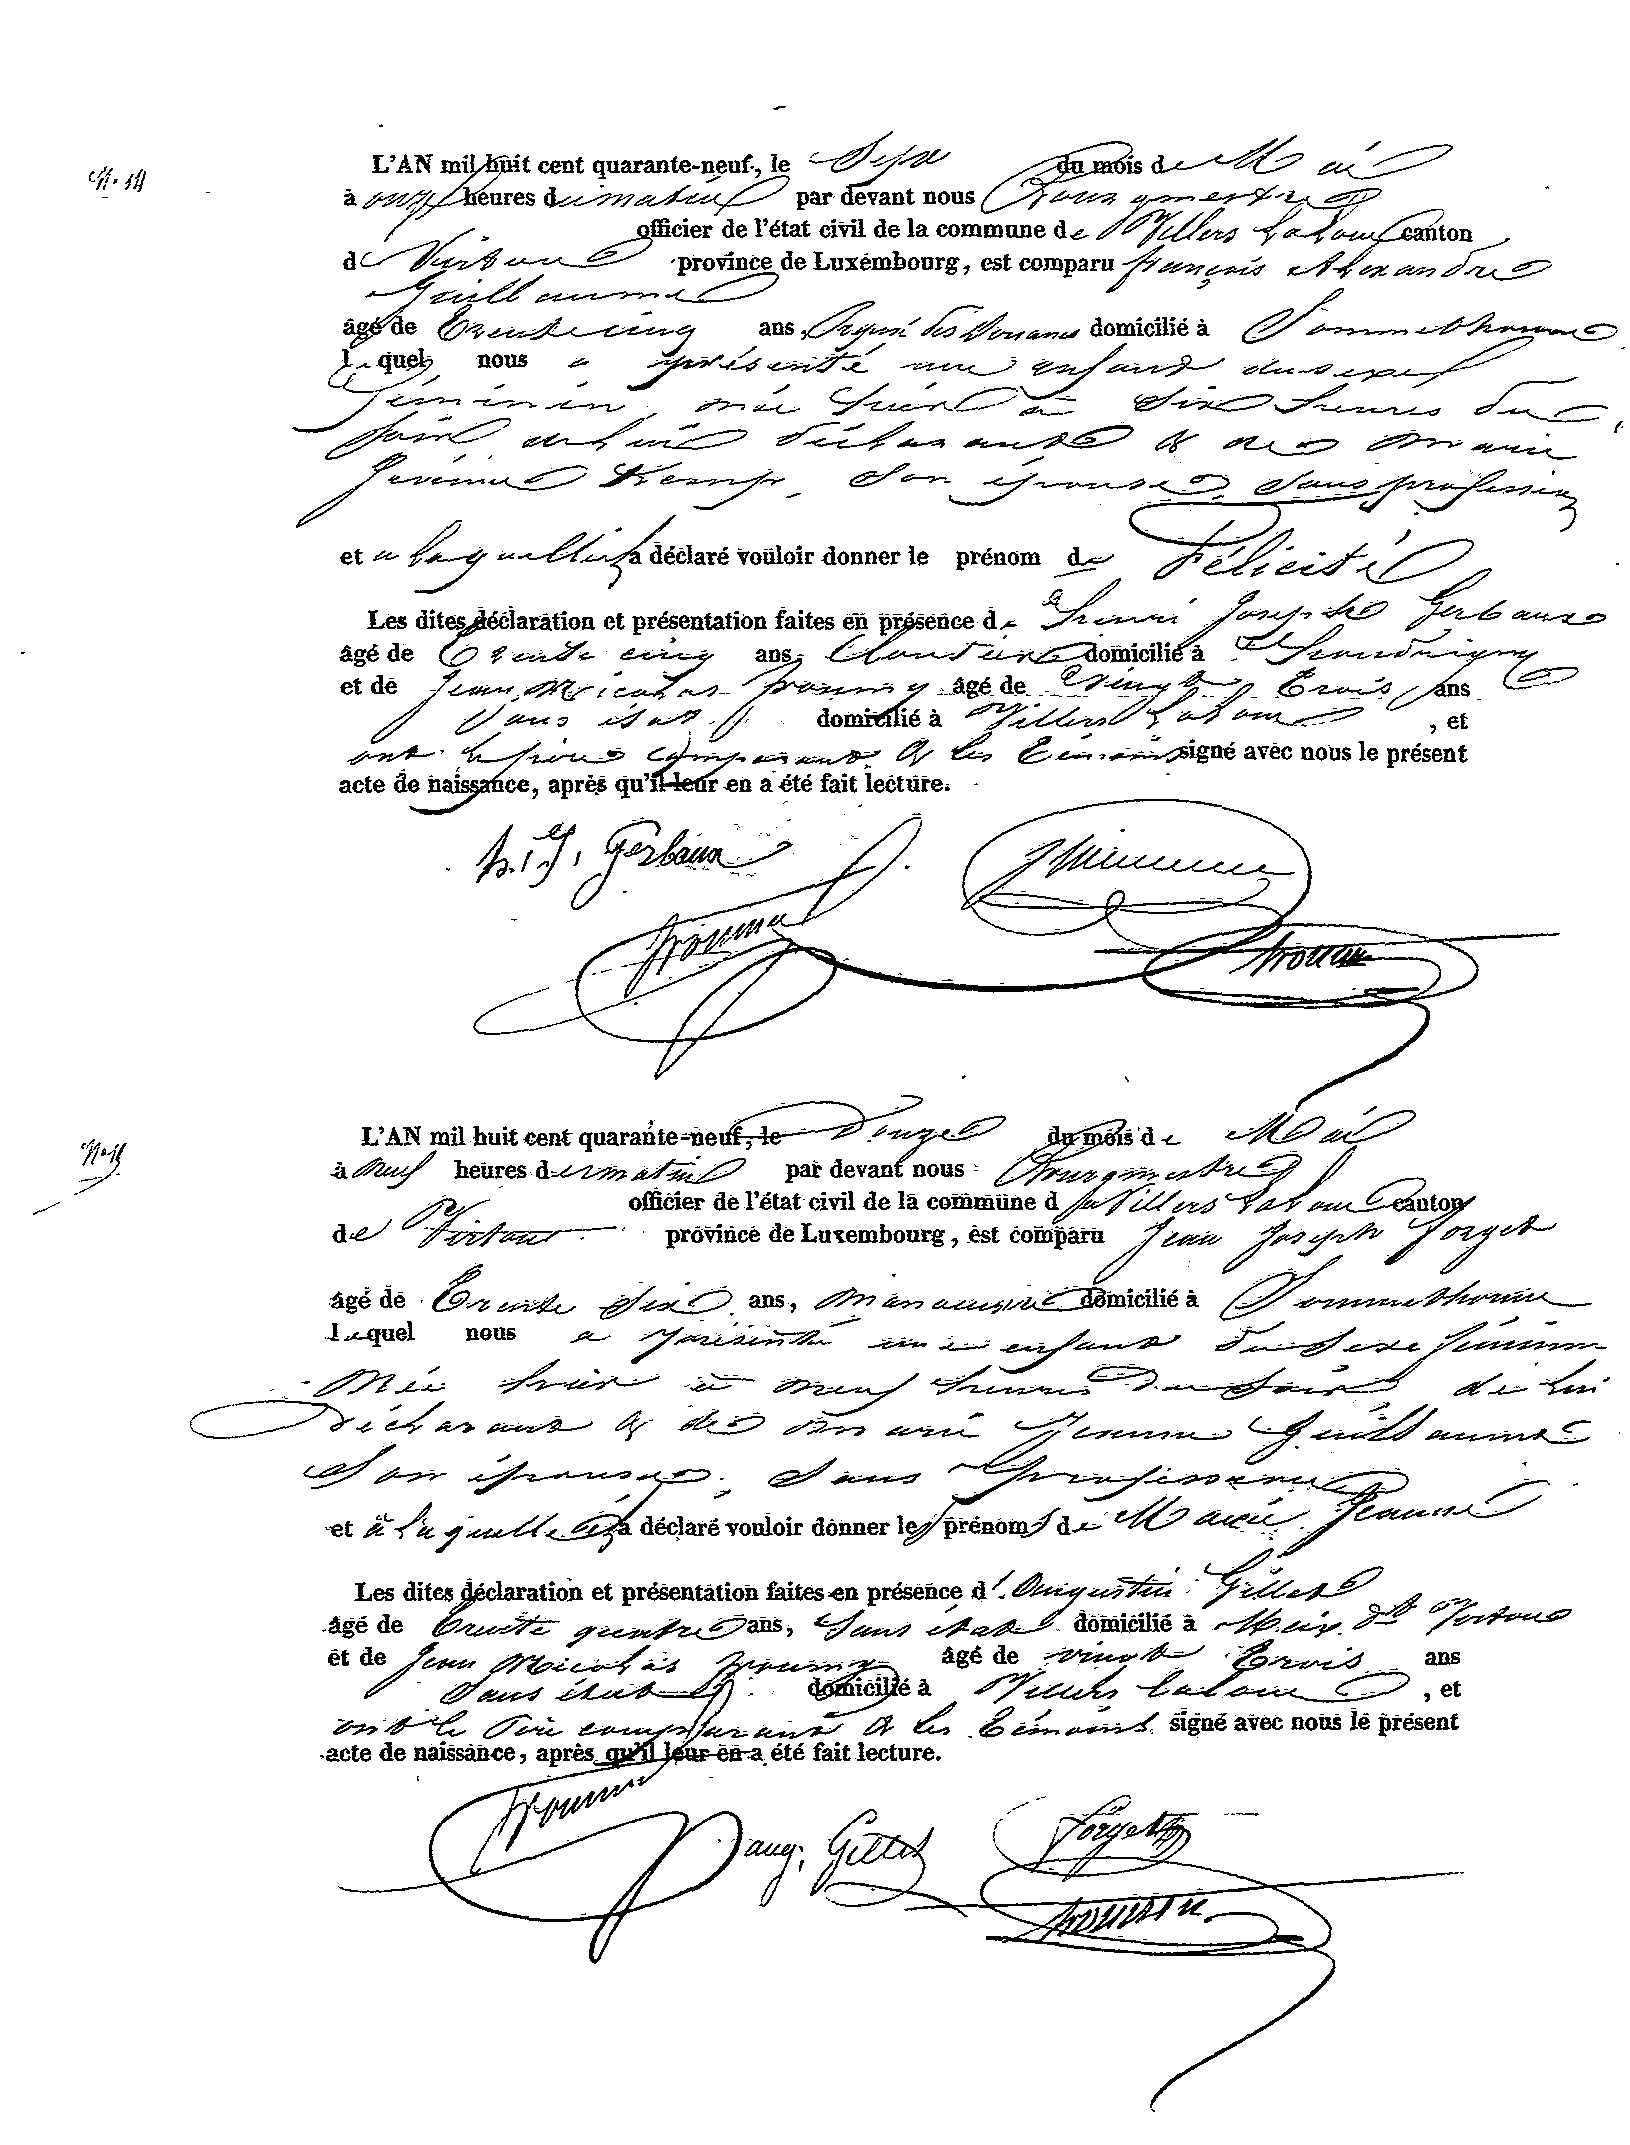 N. 14
L'AN mil huit cent quarante-neuf, le Sept du mois de Mai
à onze heures du matin par devant nous Bourgmestre
officier de l'état civil de la commune de Villers La Loue canton
de Virton province de Luxembourg, est comparu françois Alexandre
Guillaume
âgé de Trente cinq ans, Préposé des Douanes domicilié à Sommethonne
lequel nous a présenté une enfant du sexe
féminin, née hier à Six heures du
soir, de lui déclarant & de Marie
Jeanne, Son épouse, Sans profession
et a laquelle il a déclaré vouloir donner le prénom de Félicité
Les dites déclaration et présentation faites en présence de Henri Joseph Gerbaux
âgé de Trente cinq ans, domicilié à
et de Jean Nicolas âgé de Vingt Trois ans
Sans état domicilié à Villers La Loue, et
ont le père comparant & les Témoins signé avec nous le présent
acte de naissance, après qu'il leur en a été fait lecture.
h. j. Gerbaux
N. 15
L'AN mil huit cent quarante-neuf, le Douze du mois de Mai
à neuf heures du matin par devant nous Bourgmestre
officier de l'état civil de la commune d Villers La Loue canton
de Virton province de Luxembourg, est comparu Jean Joseph Forget
âgé de Trente Six ans, Manœuvre domicilié à Sommethonne
lequel nous a présenté une enfant du Sexe féminin
Née hier à neuf heures du Soir, de lui
déclarant & de Marie Jeanne Guillaume
Son épouse, Sans profession
et à laquelle il a déclaré vouloir donner les prénoms de Marie Jeanne
Les dites déclaration et présentation faites en présence d'Augustin Gillet
âgé de Trente quatre ans, Sans état domicilié à Meix dt Virton
et de Jean Nicolas âgé de vingt Trois ans
Sans état domicilié à Villers La Loue, et
ont le Père comparant & les Témoins signé avec nous le présent
acte de naissance, après qu'il leur en a été fait lecture.
aug. Gillet
Forget